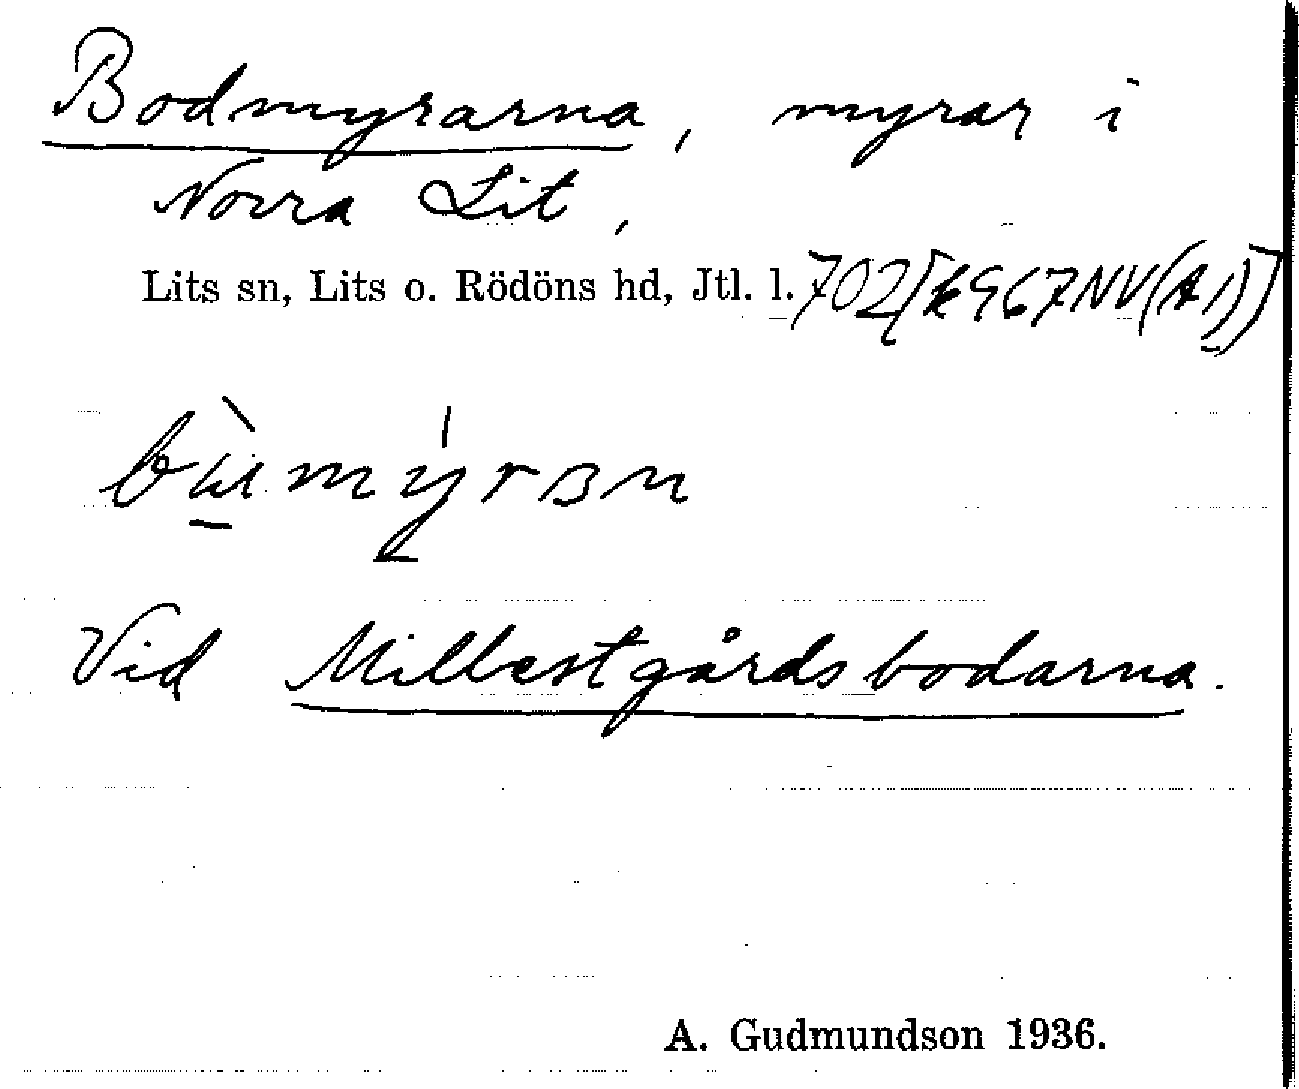 Bodmyrarna, myrar i
Norra Lit,
Lits sn, Lits o. Rödöns hd, Jtl. l. 702[k967NV(A1)]
Vid Millestgårdsbodarna.
A. Gudmundson 1936.